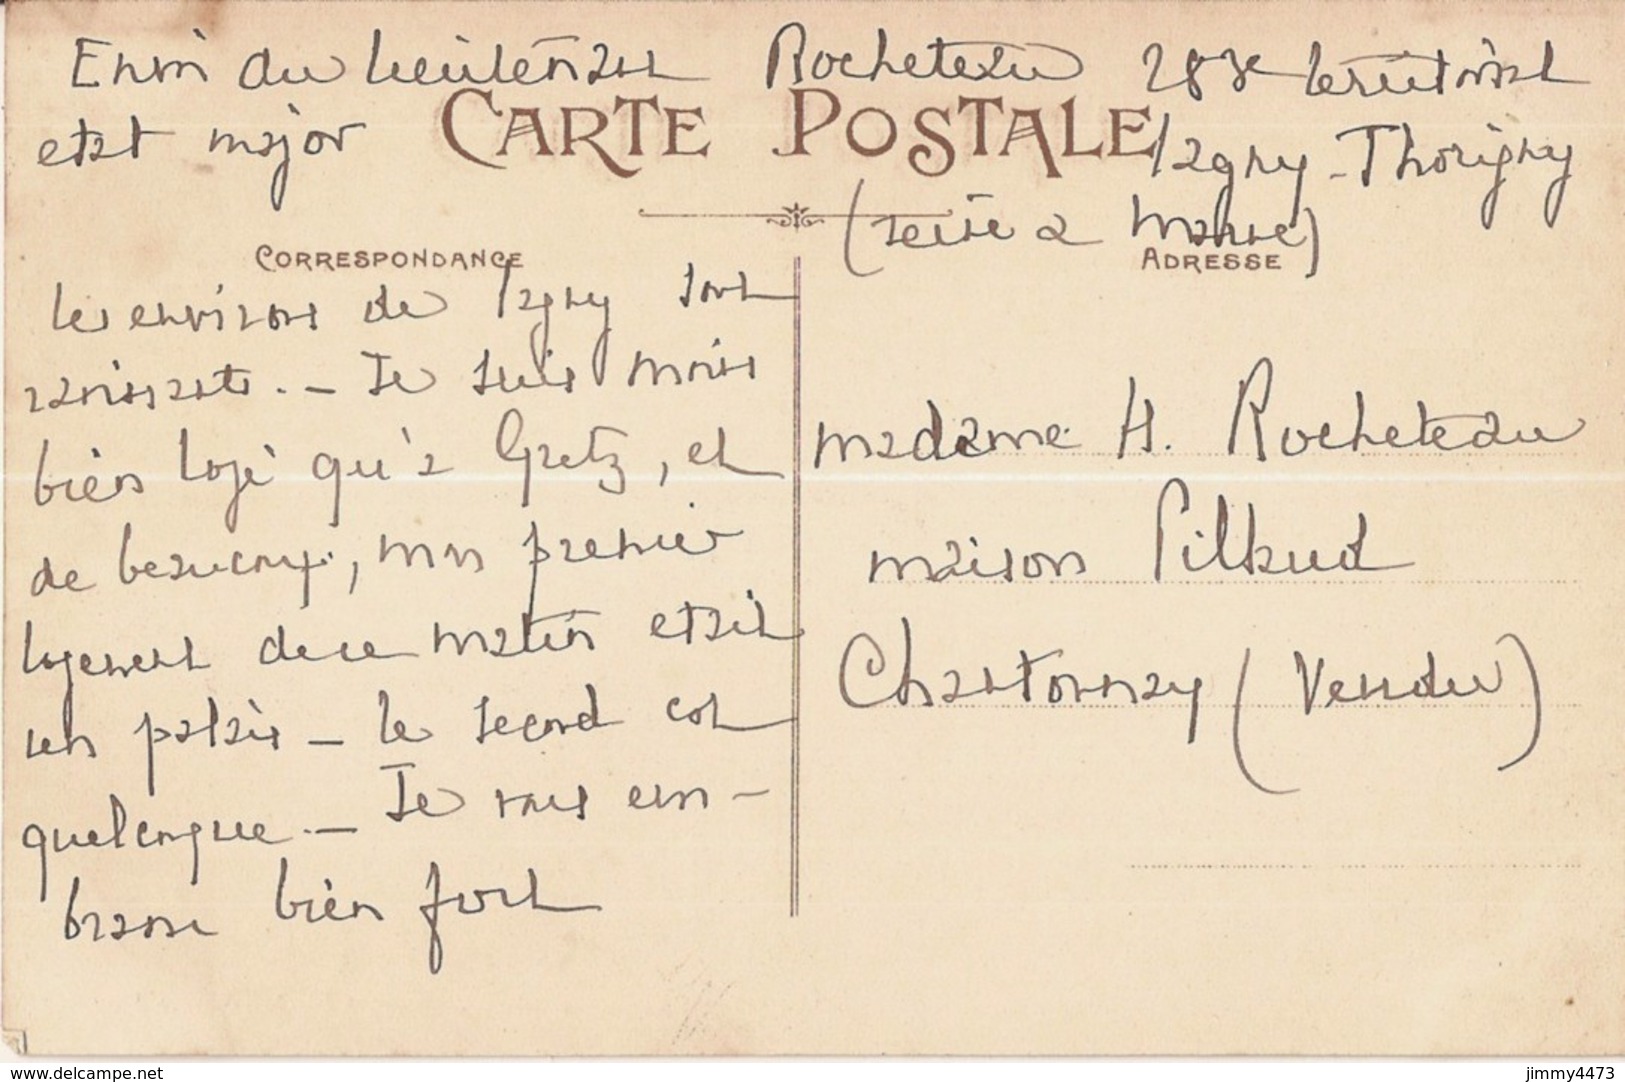 Envoi du lieutenant Rocheteau 283e territorial
etat major
CARTE POSTALE
Lagny-Thorigny
(seine & Marne)
CORRESPONDANCE
ADRESSE
les environs de Lagny sont
ravissants. — Je suis moins
bien logé qu'à Gretz, et
de beaucoup, mon premier
logement de ce matin etait
un palais — le second est
quelconque — Je vous em-
brasse bien fort
madame H. Rocheteau
maison Pilaud
Chantonnay (Vendée)
www.delcampe.net
jimmy4473